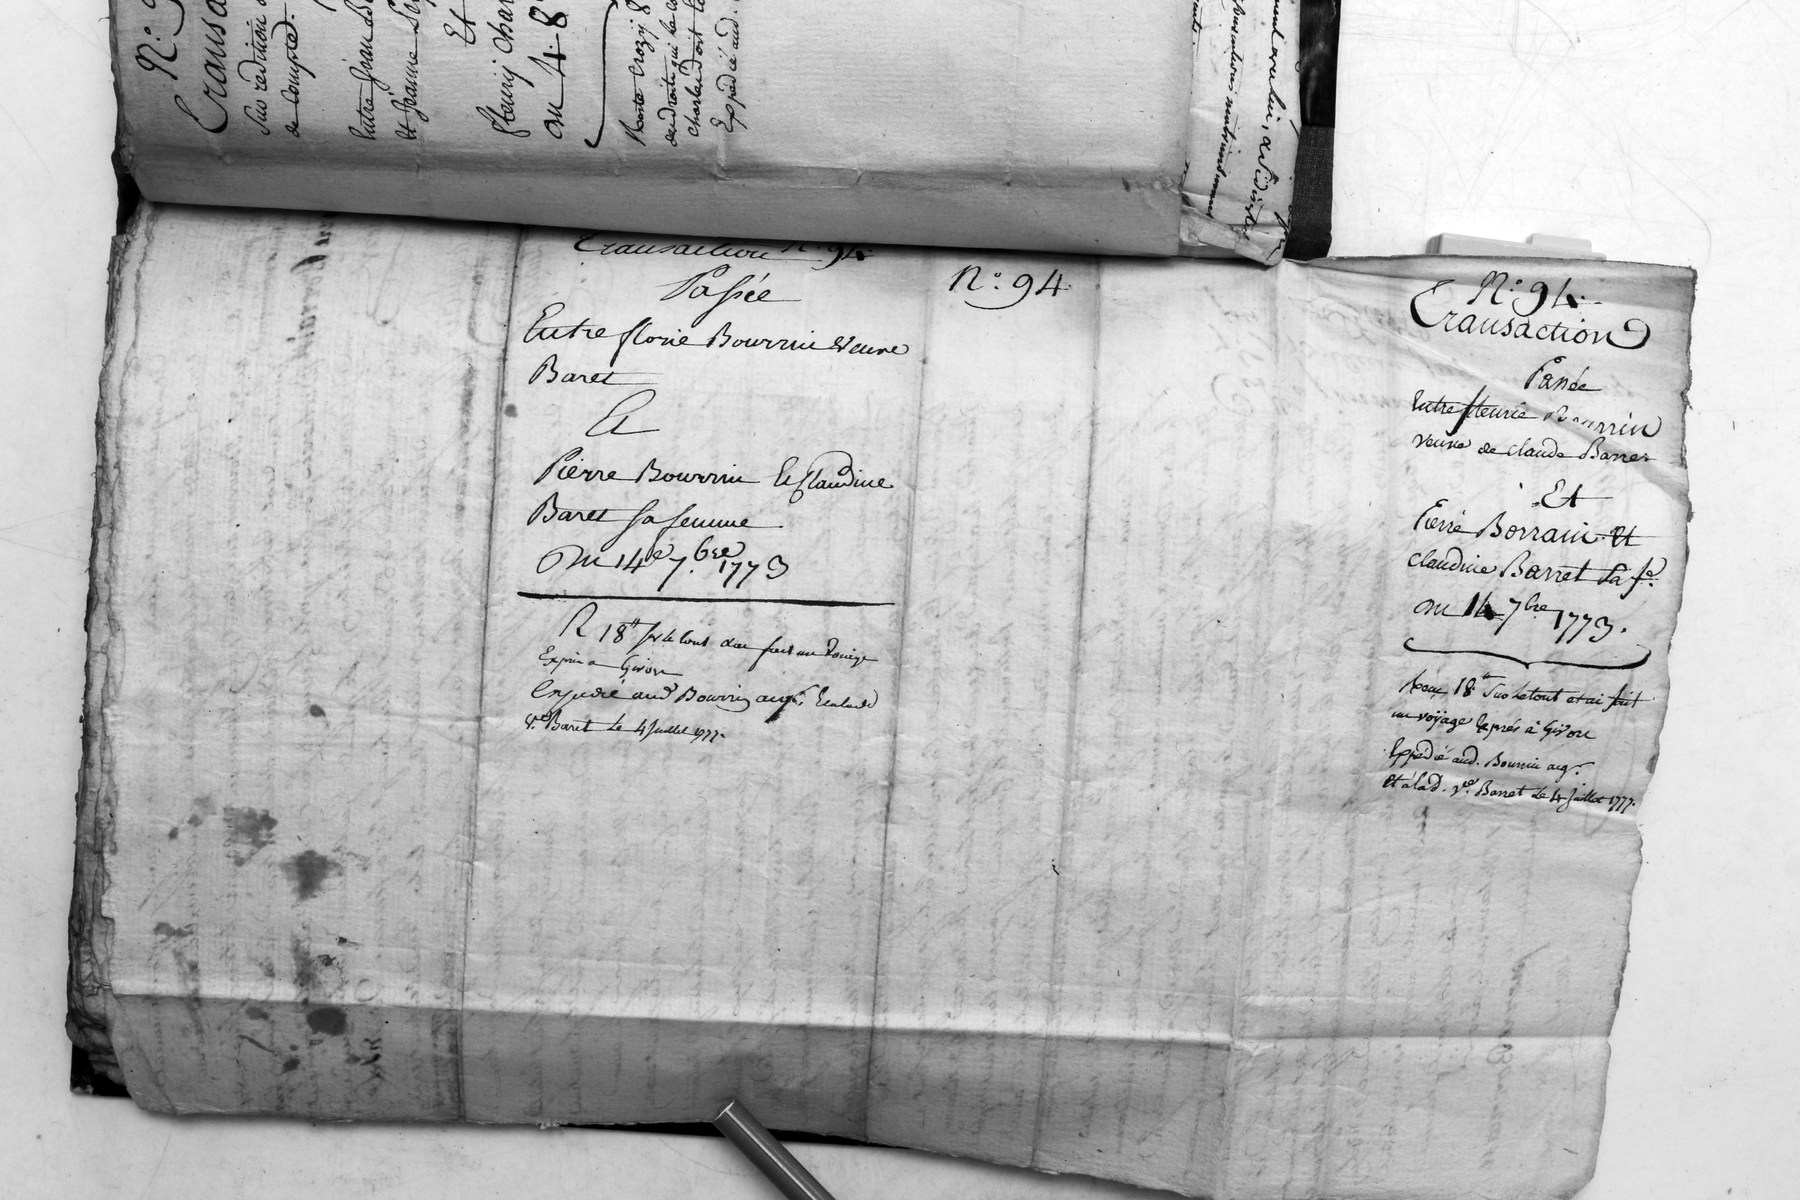 N.°
Transa
Sur reddition
de compte.
Entre jean
Et jeanne
Et
fleury char
Du 4. 8
Reste Crozy 8
des droits qui
charles doit
Expédié aud.
Transaction N.° 94.
Passée
Entre florie Bourrin veuve
Baret
Et
Pierre Bourrin et claudine
Baret sa femme
Du 14e 7.bre 1773
R 18tt sur le tout et ai fait un voiage
Exprès a Givors
Expedié aud Bourrin
v.e Baret le 4 Juillet 1777.
N.° 94
N.° 94.
Transaction
Passée
Entre fleurie Bourrin
veuve de claude Barret
Et
Pierre Borrain et
claudine Barret sa fe.
Du 14 7bre 1773.
Reçu 18tt Sur le tout et ai fait
un voÿage Exprés à Givors
Expédié aud. Bourrin
et à lad. ve. Barret le 4 Juillet 1777.